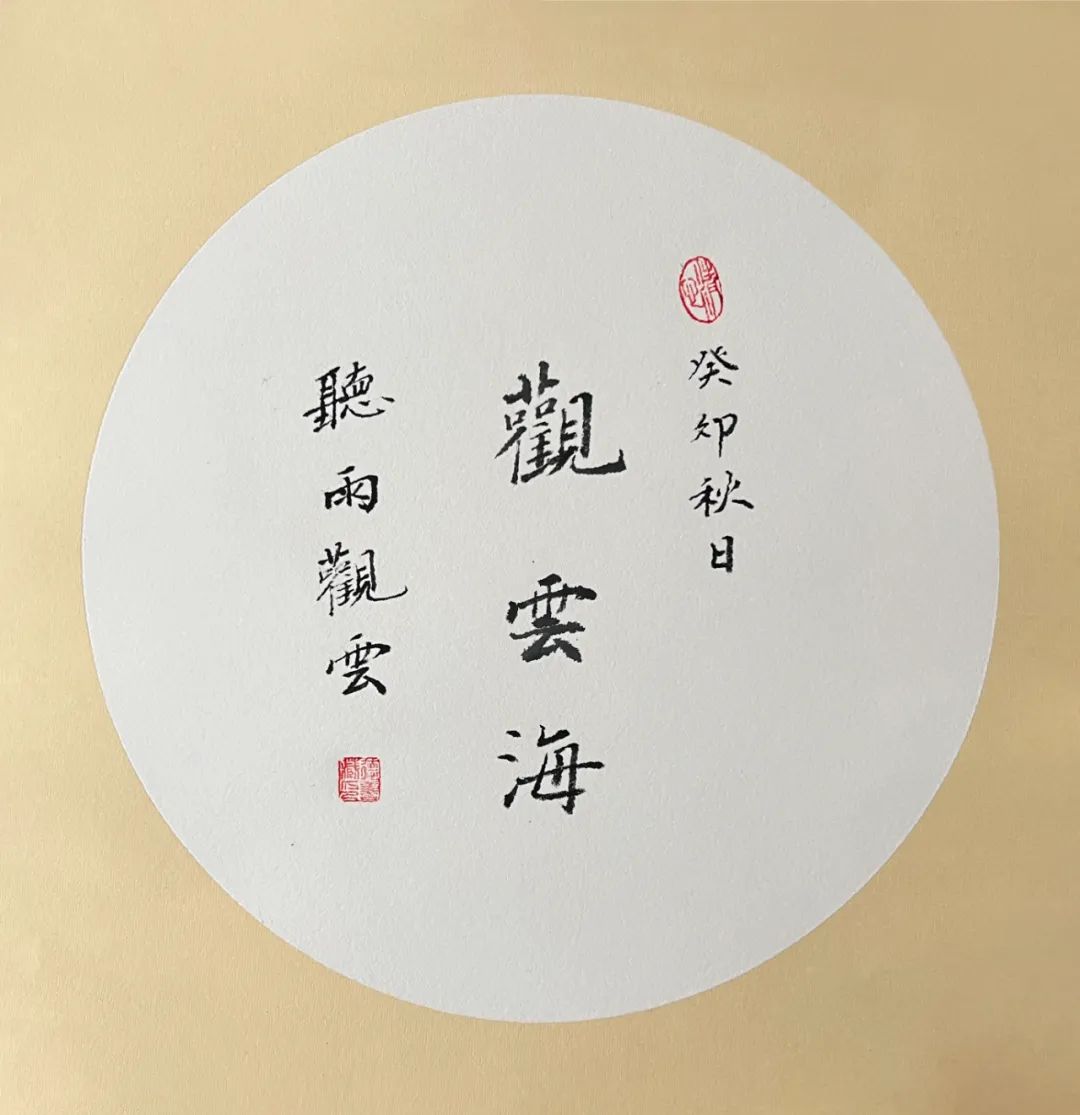 癸卯秋日
觀雲海
聽雨觀雲